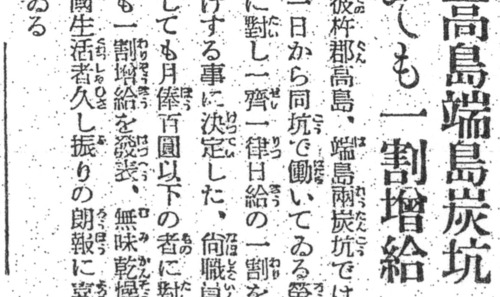 高島端島炭坑
ても一割增給
彼杵郡高島、端島兩炭坑では
一日から同坑で働いてゐる勞
に對し一齊一律日給の一割を
けする事に決定した、尙職員
しても月俸百圓以下の者に對
も一割增給を發表、無味乾燥
國生活者久し振りの朗報に喜
ゐる